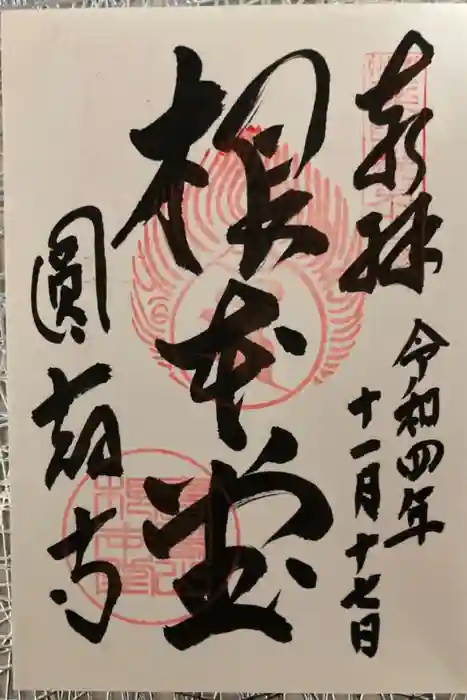 奉拝
令和四年
十一月十七日
根本堂
圓 寺